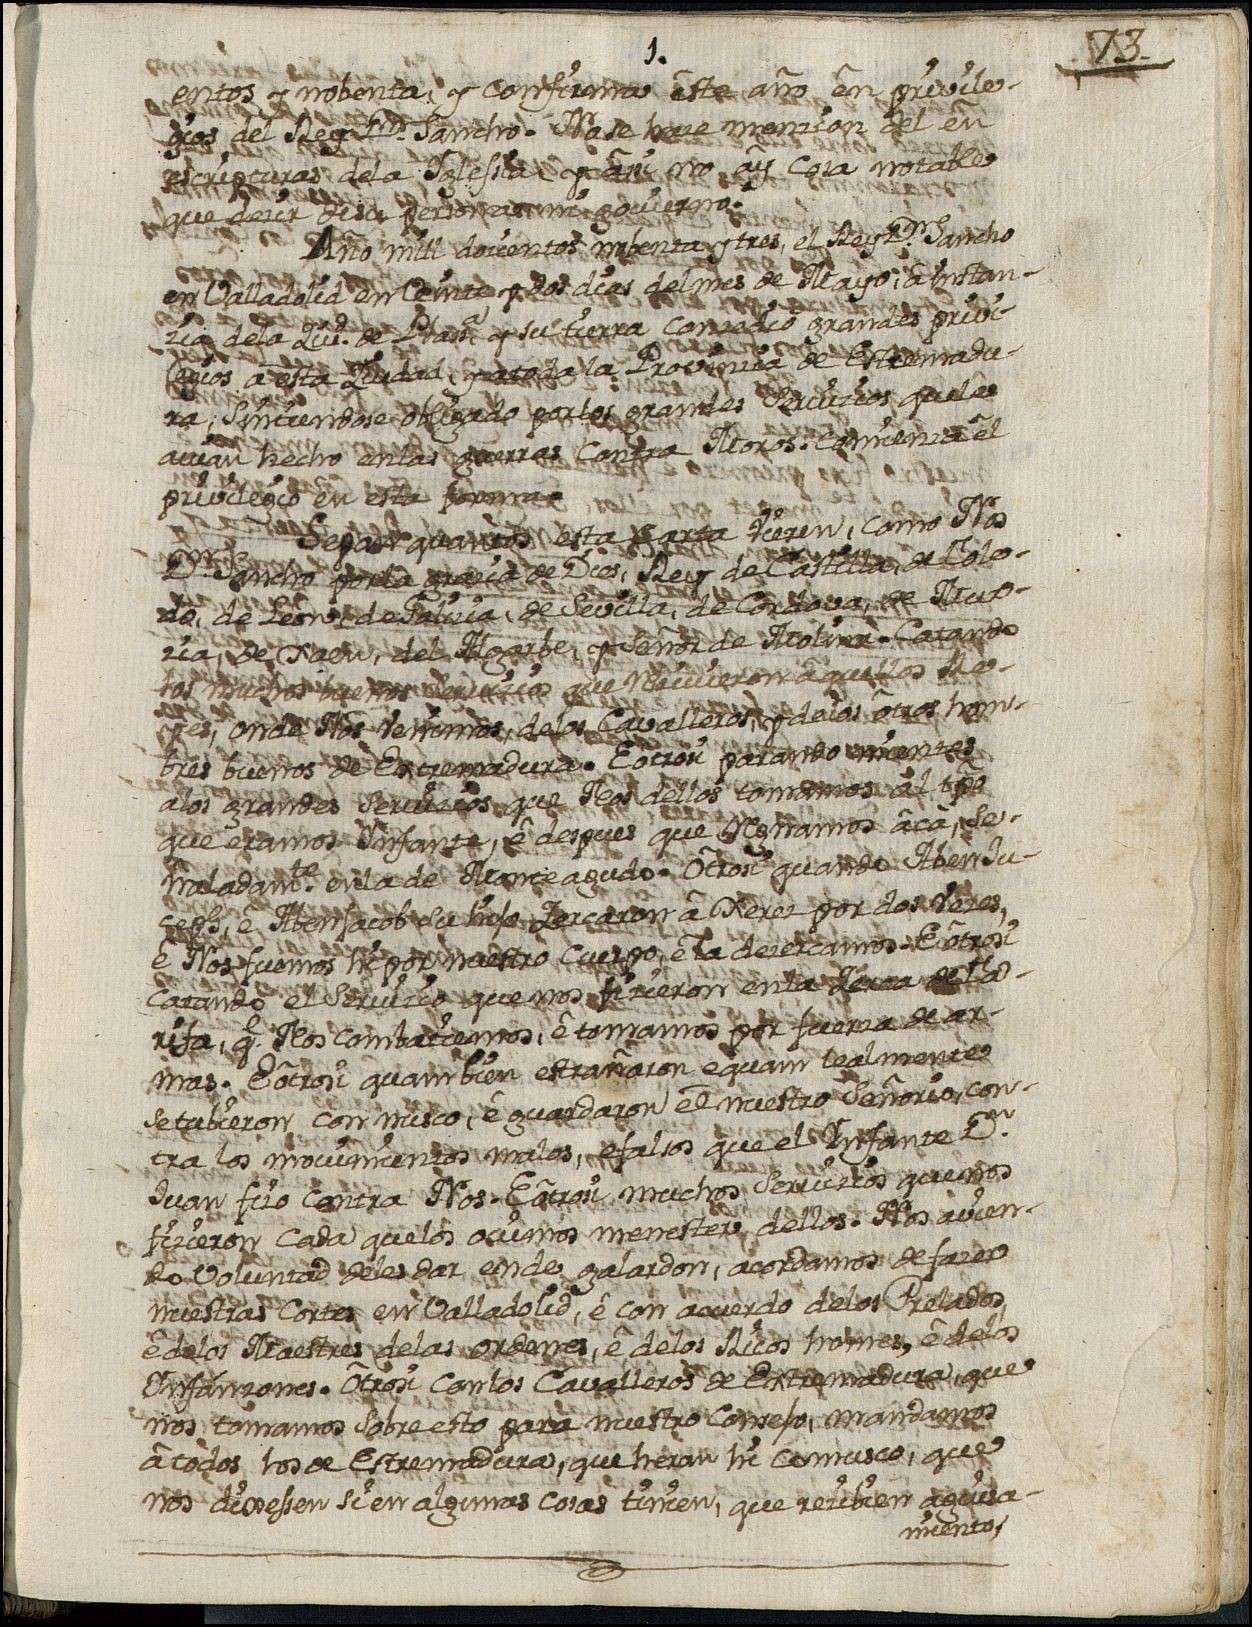 1.
73.
entos y nobenta, y confirma êste año ên privile-
gios del Rey Dn. Sancho. No se haze menzion del ên
escripturas dela Yglesia, y âsi no aÿ cosa notable
que dezir desu persona, ni govierno.
Año mill docientos nobenta y tres, el Rey Dn. Sancho
en Valladolid en veinte y dos dias del mes de Mayo, â instan-
zia dela Ziud. de Plasa. y su tierra conzedio grandes privi-
legios â esta Ziudad, y atoda la Provinzia de Estremadu-
ra, Sintiendose obligado porlos grandes Servizios quele
avian hecho enlas guerras contra Moros. Comienza êl
privilegio en esta forma.
Sepan quantos esta Carta vieren, como Nos
Dn. Sancho porla gracia de Dios, Rey de Castilla, de Tole-
do, de Leon, de Galizia, de Sevilla, de Cordova, de Mur-
zia, de Xaen, del Algarbe, y Señor de Molina. Catando
los muchos buenos Servizios que rezivieron âquellos Re-
yes, onde Nos venimos, delos Cavalleros, y delos ôtros hom-
bres buenos de Extremadura. Eotrosi parando mientes
alos grandes Servizios que Nos dellos tomamos âl tpõ
que eramos Infante, ê despues que Regnamos âcâ, Se-
ñaladamte. enla de Monteagudo. Ôtrosi quando Aben Ju-
ceph, ê Abenjacob su hijo Zercaron â Xerez por dos vezes,
ê Nos fuemos hi por nuestro Cuerpo, ê la dezercamos. Eôtrosi
Catando el Servizio que nos fizieron enla Zerca de Ta-
rifa, q. Nos combatiemos, ê tomamos por fuerza de ar-
mas. Eôtrosi quam bien estrañaron equam lealmente
se tubieron con nusco, ê guardaron êl nuestro Señorio, con-
tra los movimientos malos, e falsos que el Infante Dn.
Juan fizo contra Nos. Eôtrosi muchos Servizios quenos
fizieron cada quelos ovimos menester dellos. Nos avien-
do voluntad deles dar ende galardon, acordamos de fazer
nuestras Cortes en Valladolid, ê con acuerdo delos Prelados
ê delos Maestres delas ordenes, ê delos Ricos homes, ê delos
Infanzones. Ôtrosi conlos Cavalleros de Extremadura, que
nos tomamos sobre esto para nuestro Consejo, mandamos
â todos los de Estremadura, que heran hi connusco, que
nos dixessen si en algunas cosas tinien, que rezibien aguisa-
miento,